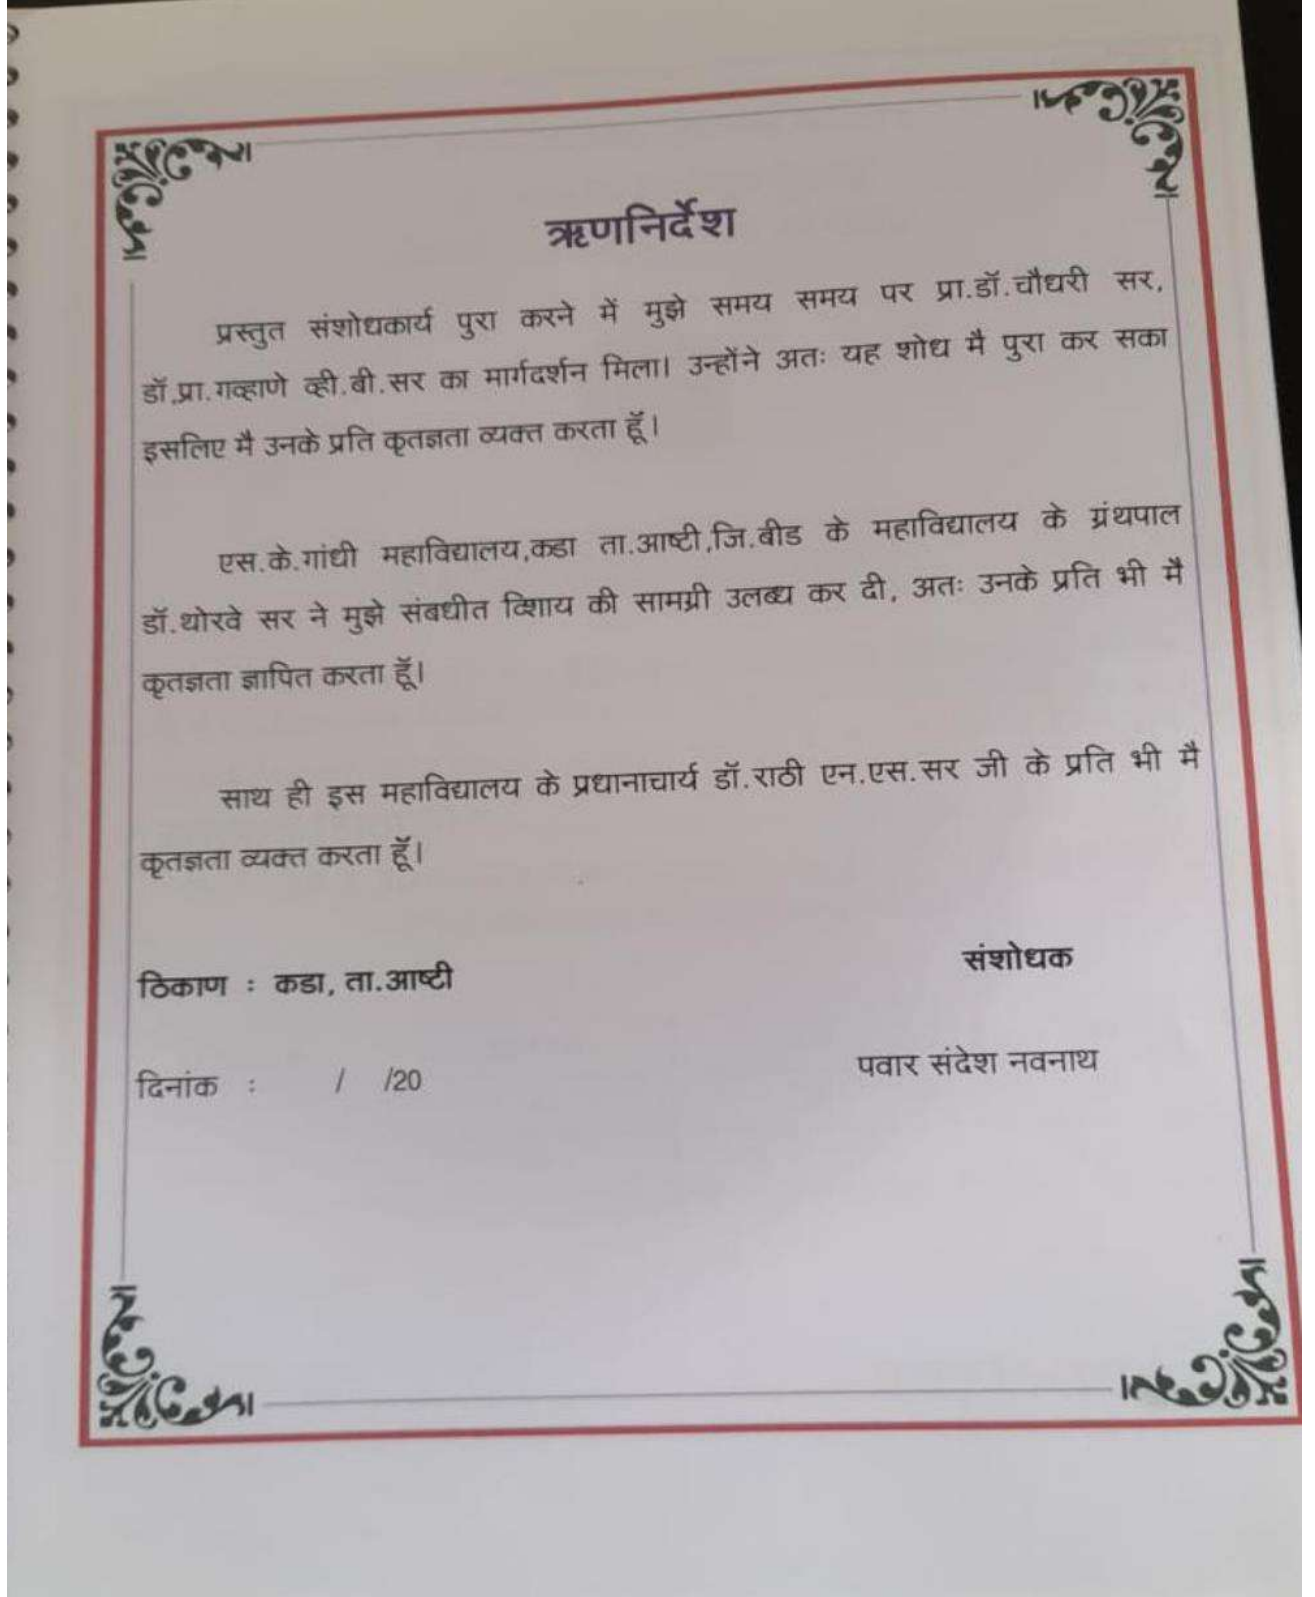 ऋणनिर्देश
प्रस्तुत संशोधकार्य पुरा करने में मुझे समय समय पर प्रा.डॉ.चौधरी सर,
डॉ.प्रा.गव्हाणे व्ही.बी.सर का मार्गदर्शन मिला। उन्होंने अतः यह शोध मै पुरा कर सका
इसलिए मै उनके प्रति कृतज्ञता व्यक्त करता हूँ।
एस.के.गांधी महाविद्यालय,कडा ता.आष्टी,जि.बीड के महाविद्यालय के ग्रंथपाल
डॉ.थोरवे सर ने मुझे संबधीत विशाय की सामग्री उलब्ध कर दी, अतः उनके प्रति भी मै
कृतज्ञता ज्ञापित करता हूँ।
साथ ही इस महाविद्यालय के प्रधानाचार्य डॉ.राठी एन.एस.सर जी के प्रति भी मै
कृतज्ञता व्यक्त करता हूँ।
ठिकाण : कडा, ता.आष्टी
संशोधक
दिनांक : / /20
पवार संदेश नवनाथ